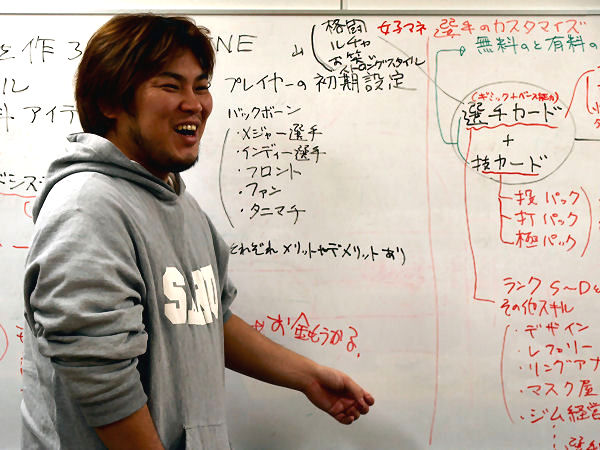 を作る
NE
ル
アイデ
格闘
ルチャ
お笑
グスタイル
プレイヤーの初期設定
バックボーン
・メジャー選手
・インディー選手
・フロント
・ファン
・タニマチ
それぞれメリットやデメリットあり
お金もうかる。
女子マネ
選手のカスタマイズ
無料のと有料の
選手カード
+
技カード
投パック
打パック
極パック
ランク S〜D
その他スキル
・デザイン
・レフリー
・リングアナ
・マスク屋
・ジム経営